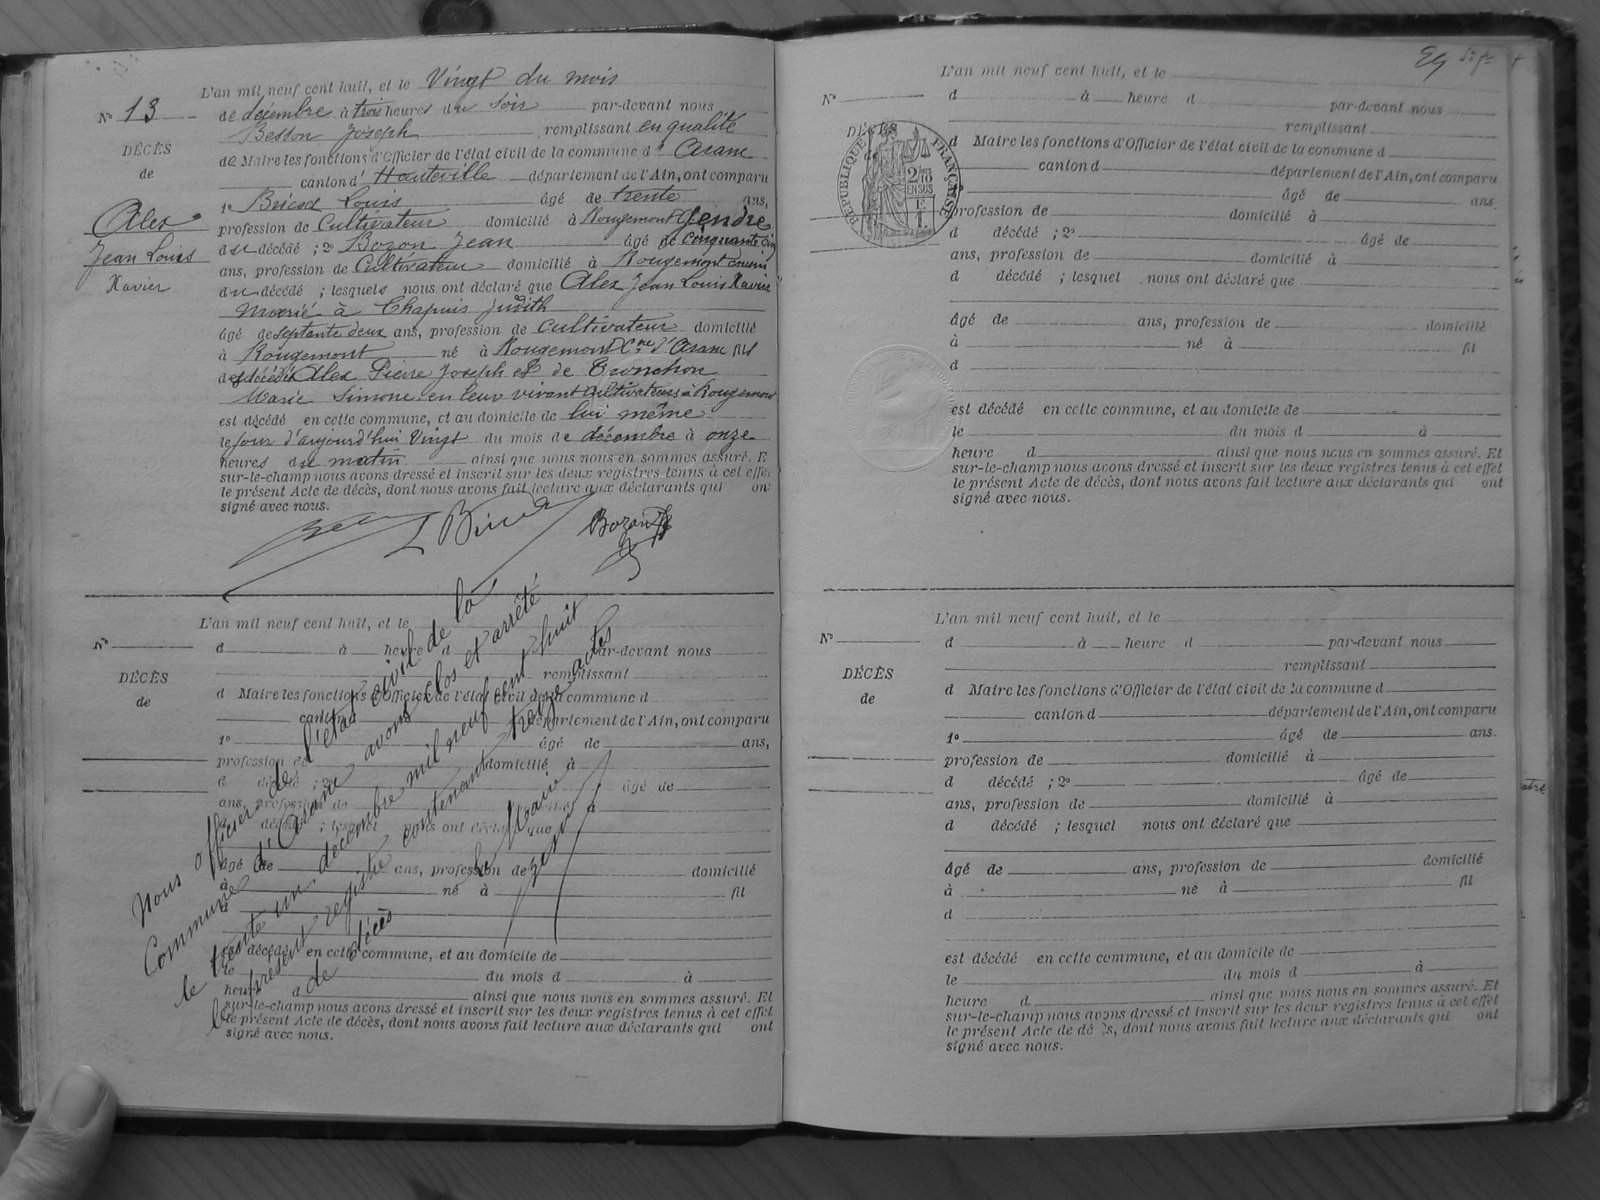 L'an mil neuf cent huit, et le Vingt du mois
N° 13 de décembre à trois heures du soir par-devant nous
Besson Joseph remplissant en qualité
DÉCÈS
de Maire les fonctions d'Officier de l'état civil de la commune d' Aranc
de
canton d' Hauteville département de l'Ain, ont comparu
1° Louis âgé de trente ans,
Alex
Jean Louis
Xavier
profession de Cultivateur domicilié à Rougemont Gendre
du décédé ; 2° Bozon Jean âgé de cinquante cinq
ans, profession de Cultivateur domicilié à Rougemont cousin
du décédé ; lesquels nous ont déclaré que Alex Jean Louis Xavier
Marié à Chapuis Judith
âgé de septante deux ans, profession de cultivateur domicilié
à Rougemont né à Rougemont Cne d'Aranc fils
des décédés Alex Pierre Joseph et de Tronchon
Marie Simone en leur vivant cultivateurs à Rougemont
est décédé en cette commune, et au domicile de lui même
le jour d'aujourd'hui Vingt du mois de décembre à onze
heures du matin ainsi que nous nous en sommes assuré. E
sur-le-champ nous avons dressé et inscrit sur les deux registres tenus à cet effet
le présent Acte de décès, dont nous avons fait lecture aux déclarants qui on
signé avec nous.
Bozon
L'an mil neuf cent huit, et le
N° d à heure d par-devant nous
remplissant
DÉCÈS
de
d Maire les fonctions d'Officier de l'état civil de la commune d
canton d département de l'Ain, ont comparu
1° âgé de ans,
profession de domicilié à
d décédé ; 2° âgé de
ans, profession de domicilié à
d décédé ; lesquel nous ont déclaré que
âgé de ans, profession de domicilié
à né à fil
d
est décédé en cette commune, et au domicile de
le du mois d à
heure d ainsi que nous nous en sommes assuré. Et
sur-le-champ nous avons dressé et inscrit sur les deux registres tenus à cet effet
le présent Acte de décès, dont nous avons fait lecture aux déclarants qui ont
signé avec nous.
Nous officier de l'état civil de la
Commune d'Aranc avons clos et arrêté
le trente un décembre mil neuf cent huit
le présent registre contenant treize actes
de décès
Le Maire
L'an mil neuf cent huit, et le
N° d à heure d par-devant nous
DÉCÈS
remplissant
d Maire les fonctions d'Officier de l'état civil de la commune d
RÉPUBLIQUE FRANÇAISE
2/10 EN SUS
canton d département de l'Ain, ont comparu
âgé de ans.
profession de domicilié à
d décédé ; 2° âgé de
ans, profession de domicilié à
d décédé ; lesquel nous ont déclaré que
âgé de ans, profession de domicilié
à né à fil
d
est décédé en cette commune, et au domicile de
le du mois d à
heure d ainsi que nous nous en sommes assuré. Et
sur-le-champ nous avons dressé et inscrit sur les deux registres tenus à cet effet
le présent Acte de décès, dont nous avons fait lecture aux déclarants qui ont
signé avec nous.
L'an mil neuf cent huit, et le
N° d à heure d par-devant nous
remplissant
DÉCÈS
de
d Maire les fonctions d'Officier de l'état civil de la commune d
canton d département de l'Ain, ont comparu
1° âgé de ans.
profession de domicilié à
d décédé ; 2° âgé de
ans, profession de domicilié à
d décédé ; lesquel nous ont déclaré que
âgé de ans, profession de domicilié
à né à fil
d
est décédé en cette commune, et au domicile de
le du mois d à
heure d ainsi que nous nous en sommes assuré. Et
sur-le-champ nous avons dressé et inscrit sur les deux registres tenus à cet effet
le présent Acte de décès, dont nous avons fait lecture aux déclarants qui ont
signé avec nous.